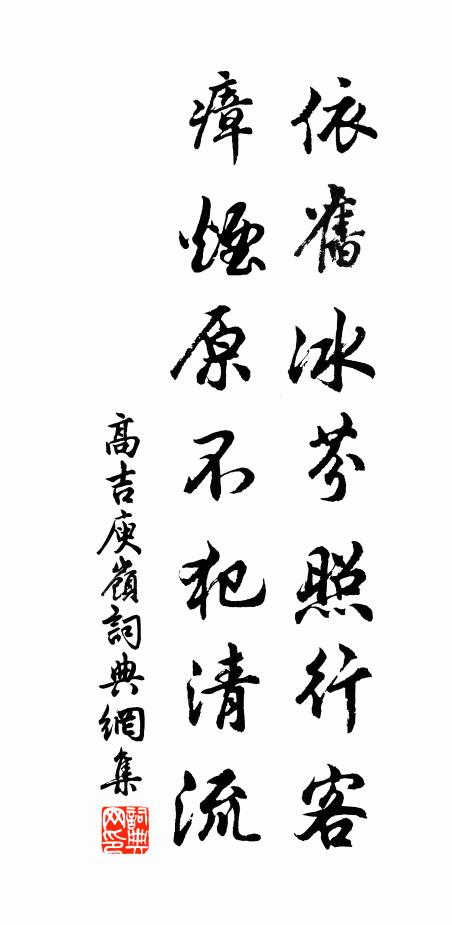 依舊冰芬照行客
瘴煙原不犯清流
高吉庾嶺詞典網集
詞典网印